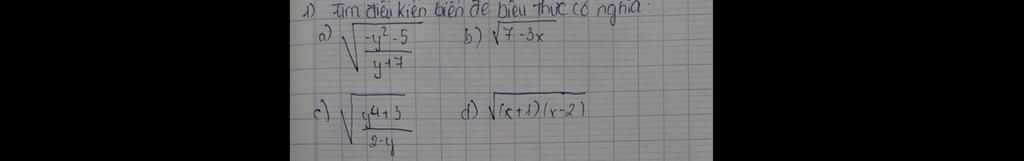 1) Tìm điều kiện biến để biểu thức có nghĩa:
a) √((-y²-5)/(y+7)) b) √(7-3x)
c) √((y⁴+3)/(2-y)) d) √((x+1)(x-2))